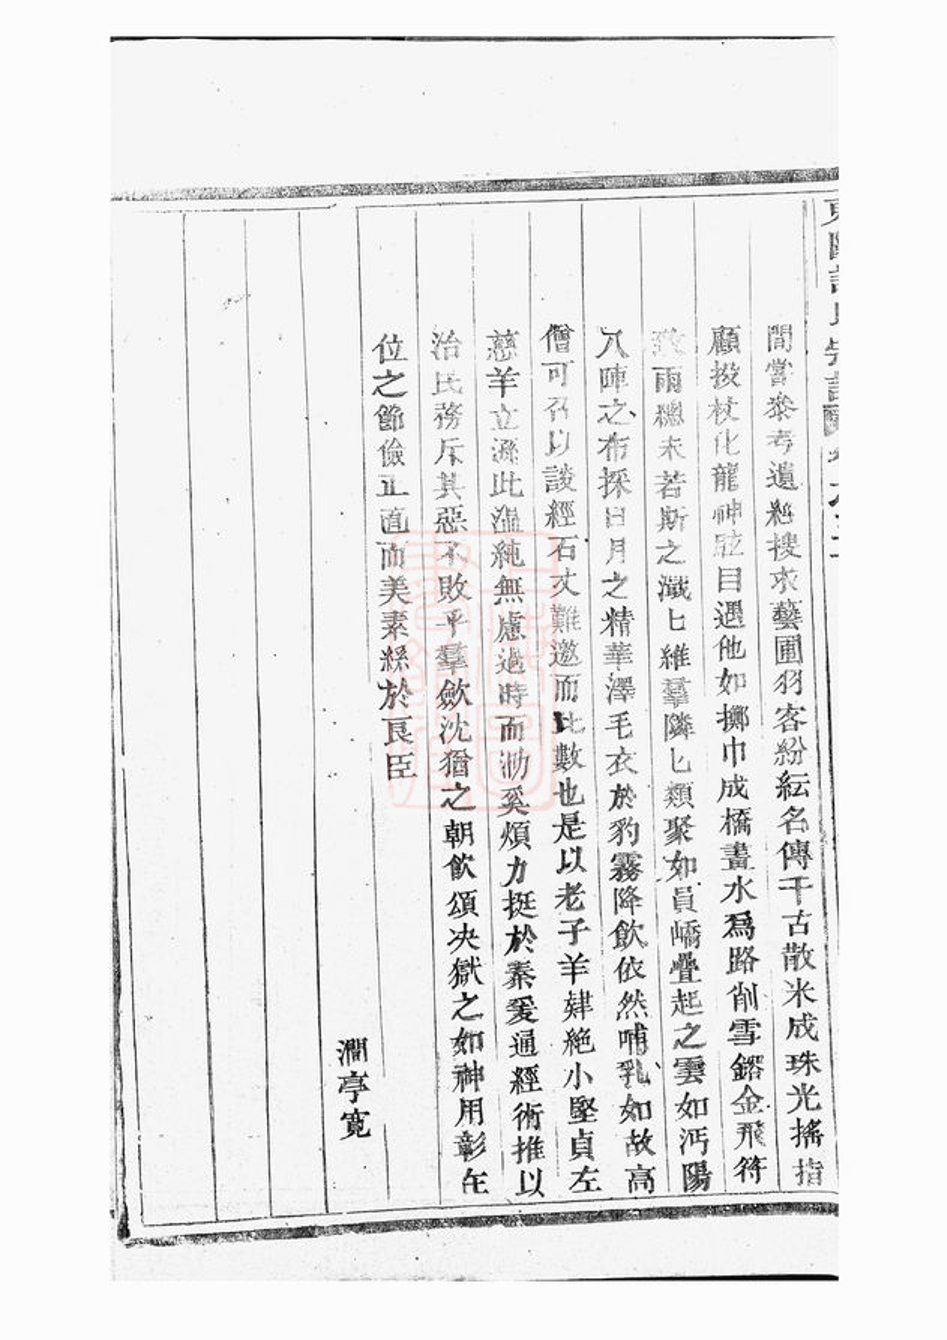 間嘗叅考遺編搜求藝圃羽客紛紜名傳千古散米成珠光搖指
顧投杖化龍神眩目遇他如擲巾成橋畫水爲路削雪鎔金飛符
致雨總未若斯之濈匕維羣隣匕類聚如員嶠疊起之雲如沔陽
八陣之布採日月之精華澤毛衣於豹霧降飲依然哺乳如故高
僧可召以談經石丈難邀而比數也是以老子羊肆絶小堅貞左
慈羊立遜此溫純無慮過時而泐奚煩力挺於秦爰通經術推以
治民務斥其惡不敗乎羣歛沈猶之朝飲頌决獄之如神用彰在
位之節儉正直而美素絲於良臣
澗亭寬